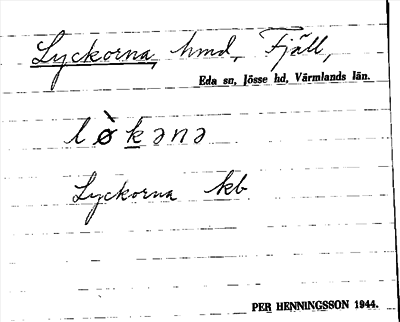 Lyckorna, hmd, Fjäll,
Eda sn, Jösse hd, Värmlands län.
lø̀kənə
Lyckorna kb
PER HENNINGSSON 1944.